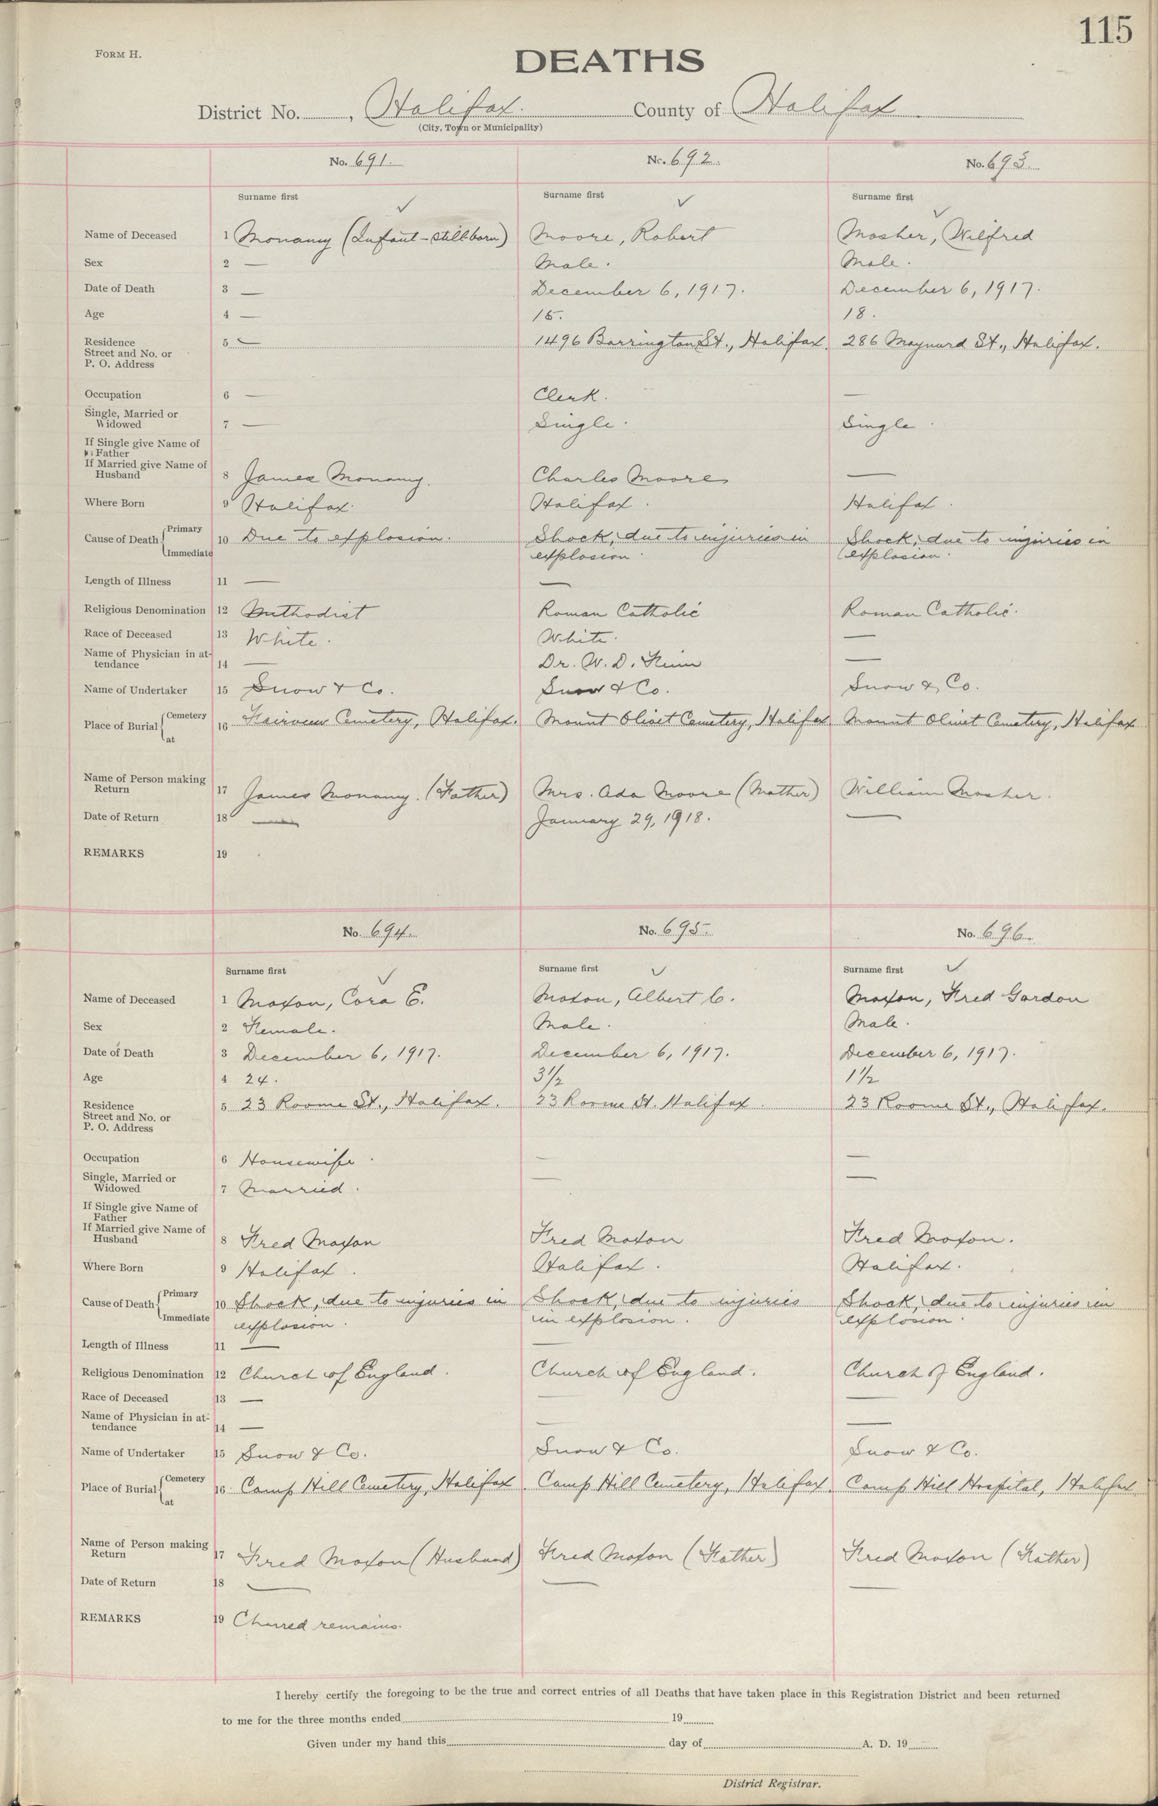 115
FORM H.
DEATHS
District No. , Halifax. County of Halifax
(City, Town or Municipality)
No. 691. No. 692. No. 693.
Surname first Surname first Surname first
Name of Deceased 1 Monamy (Infant - stillborn) Moore, Robert Mosher, Wilfred
Sex 2 — Male. Male.
Date of Death 3 — December 6, 1917. December 6, 1917.
Age 4 — 15. 18.
Residence 5 — 1496 Barrington St., Halifax. 286 Maynard St., Halifax.
Street and No. or
P. O. Address
Occupation 6 — Clerk. —
Single, Married or
Widowed 7 — Single. Single.
If Single give Name of
Father
If Married give Name of
Husband 8 James Monamy. Charles Moore —
Where Born 9 Halifax. Halifax. Halifax.
Primary
Cause of Death 10 Due to explosion. Shock, due to injuries in Shock, due to injuries in
Immediate explosion. explosion.
Length of Illness 11 — —
Religious Denomination 12 Methodist Roman Catholic Roman Catholic.
Race of Deceased 13 White. White. —
Name of Physician in at-
tendance 14 — Dr. W. D. Finn —
Name of Undertaker 15 Snow & Co. Snow & Co. Snow & Co.
Cemetery
Place of Burial 16 Fairview Cemetery, Halifax. Mount Olivet Cemetery, Halifax Mount Olivet Cemetery, Halifax
at
Name of Person making
Return 17 James Monamy. (Father) Mrs. Ada Moore (Mother) William Mosher.
Date of Return 18 — January 29, 1918. —
REMARKS 19
No. 694. No. 695. No. 696.
Surname first Surname first Surname first
Name of Deceased 1 Moxon, Cora E. Moxon, Albert C. Moxon, Fred Gordon
Sex 2 Female. Male. Male.
Date of Death 3 December 6, 1917. December 6, 1917. December 6, 1917.
Age 4 24. 3½ 1½
Residence 5 23 Roome St., Halifax. 23 Roome St. Halifax. 23 Roome St., Halifax.
Street and No. or
P. O. Address
Occupation 6 Housewife. — —
Single, Married or
Widowed 7 Married. — —
If Single give Name of
Father
If Married give Name of
Husband 8 Fred Moxon Fred Moxon Fred Moxon.
Where Born 9 Halifax. Halifax. Halifax.
Primary
Cause of Death 10 Shock, due to injuries in Shock, due to injuries Shock, due to injuries in
Immediate explosion. in explosion. explosion.
Length of Illness 11 — —
Religious Denomination 12 Church of England. Church of England. Church of England.
Race of Deceased 13 — — —
Name of Physician in at-
tendance 14 — — —
Name of Undertaker 15 Snow & Co. Snow & Co. Snow & Co.
Cemetery
Place of Burial 16 Camp Hill Cemetery, Halifax Camp Hill Cemetery, Halifax. Camp Hill Hospital, Halifax
at
Name of Person making
Return 17 Fred Moxon (Husband) Fred Moxon (Father) Fred Moxon (Father)
Date of Return 18 — — —
REMARKS 19 Charred remains.
I hereby certify the foregoing to be the true and correct entries of all Deaths that have taken place in this Registration District and been returned
to me for the three months ended 19
Given under my hand this day of A. D. 19
District Registrar.